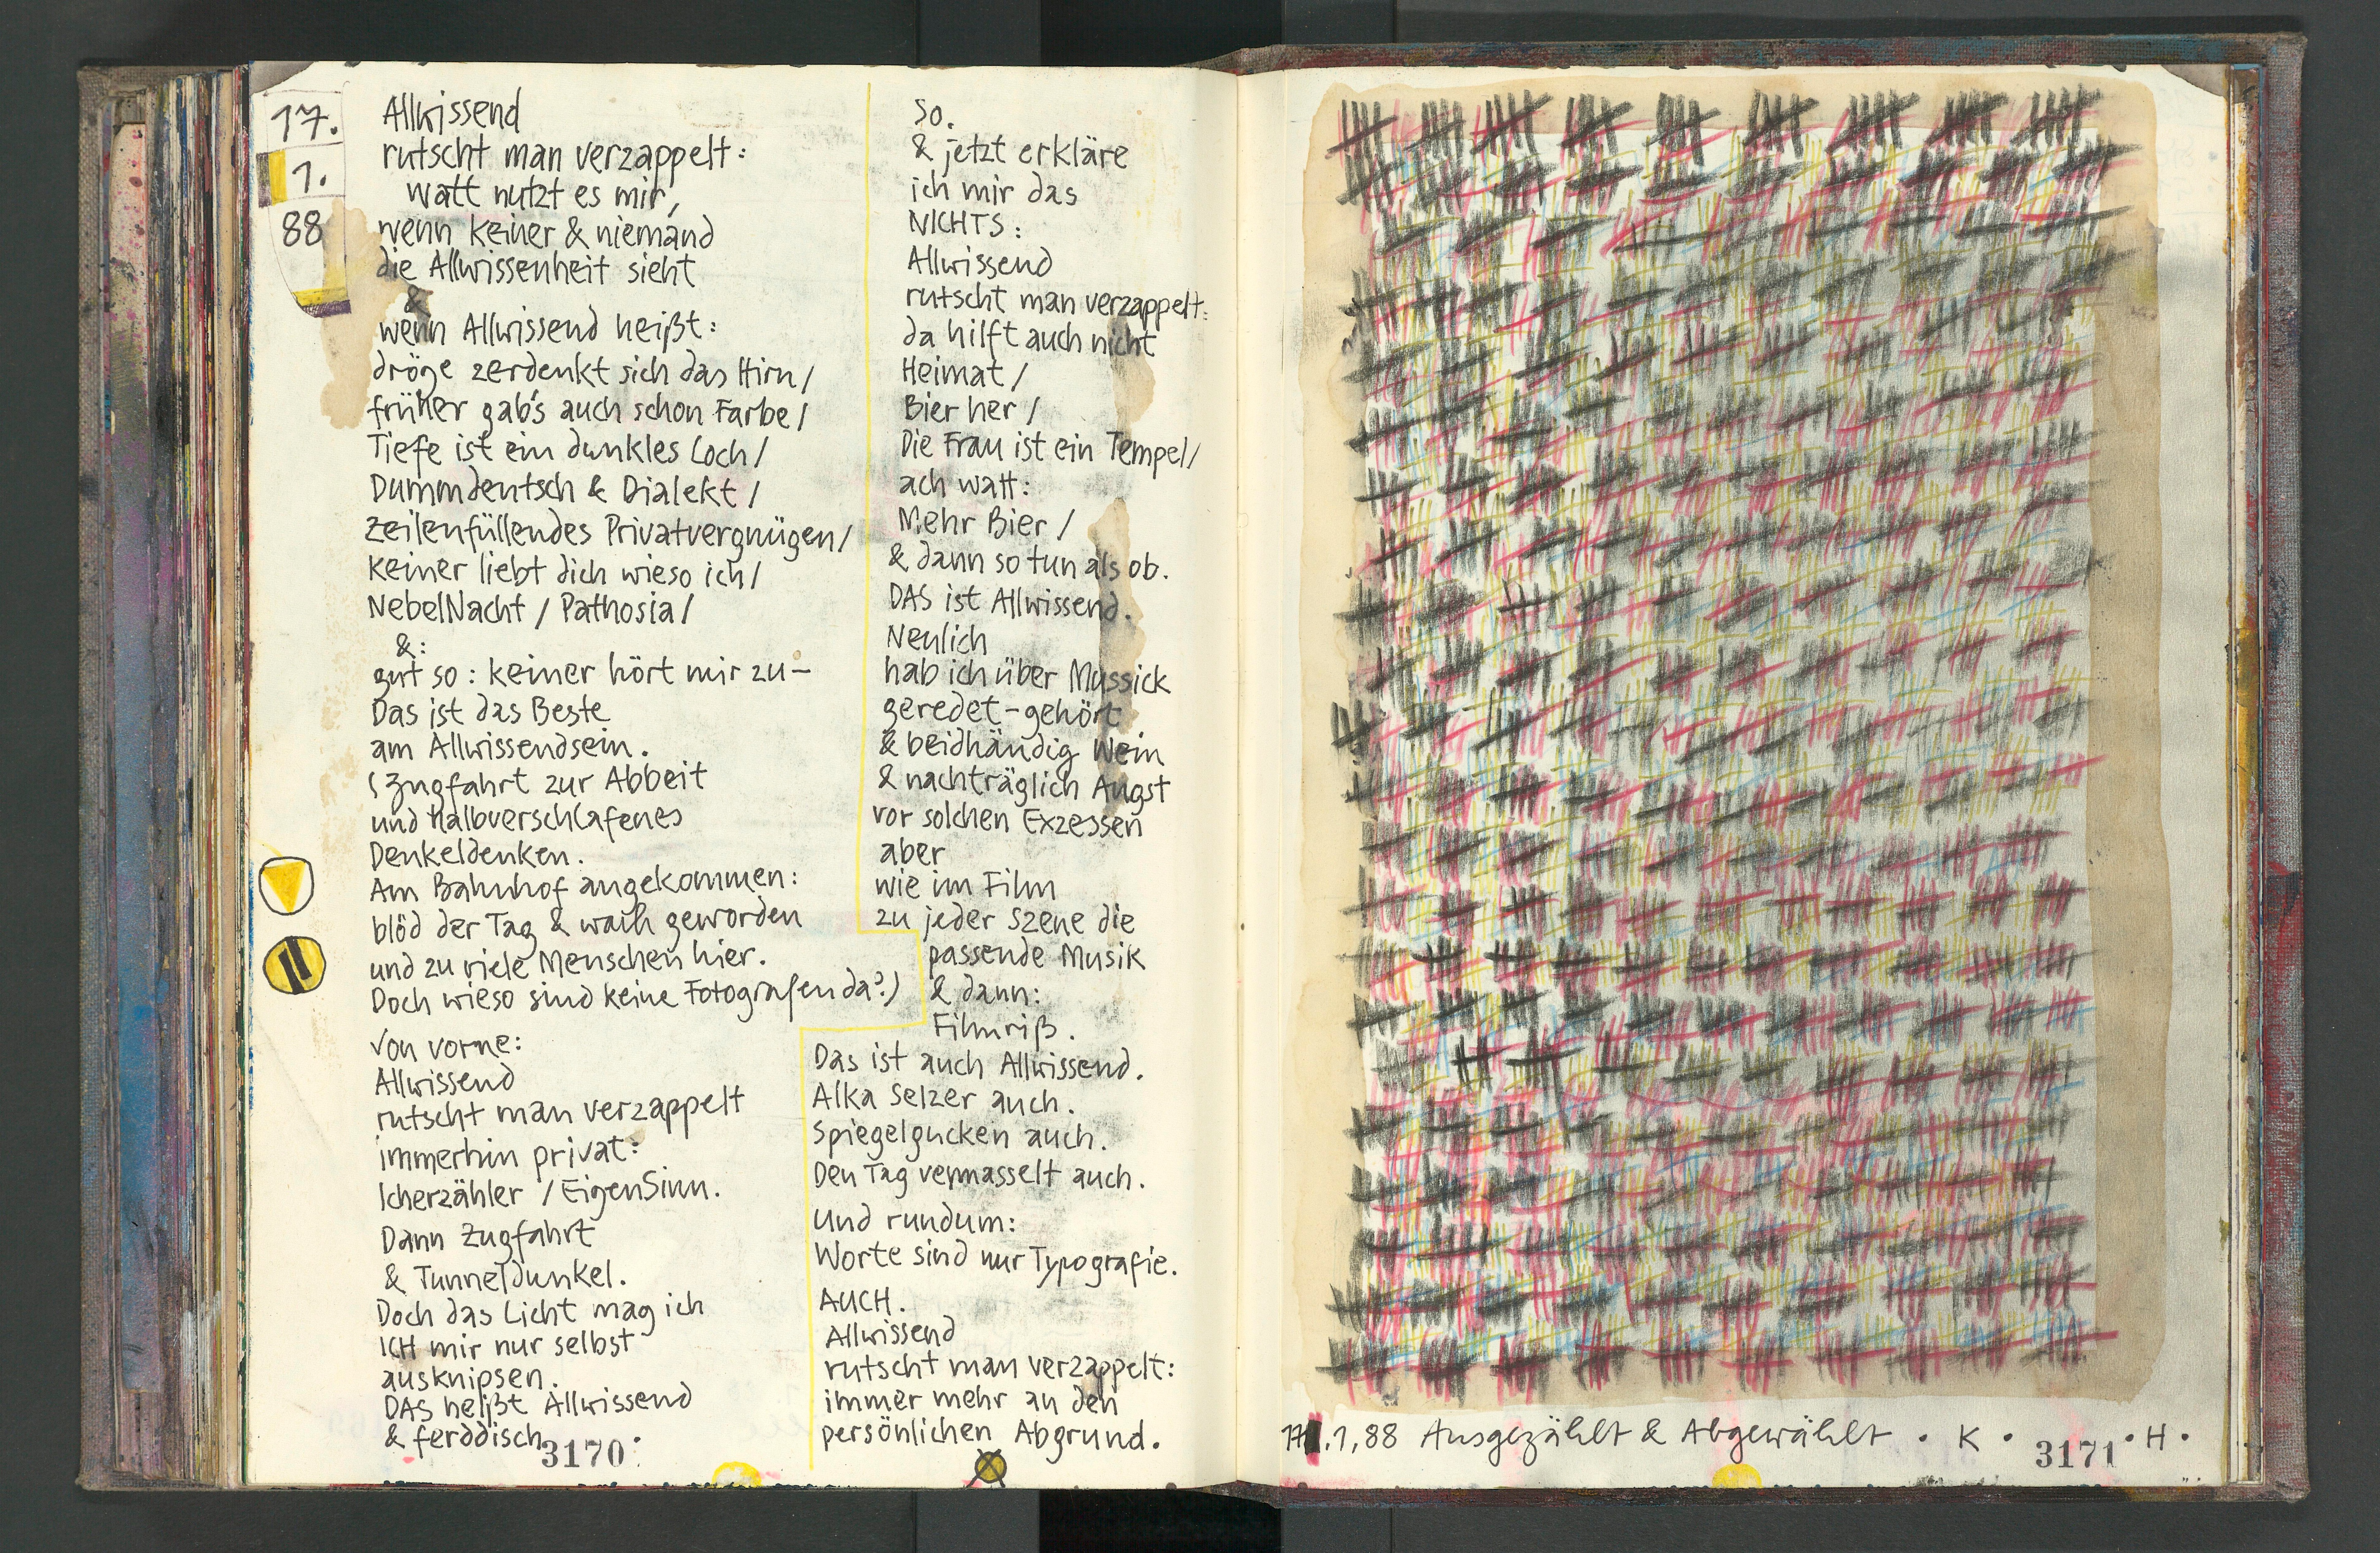 17.
1.
88
Allwissend
rutscht man verzappelt:
watt nutzt es mir,
wenn keiner & niemand
die Allwissenheit sieht
&
wenn Allwissend heißt:
dröge zerdenkt sich das Hirn/
früher gab's auch schon Farbe/
Tiefe ist ein dunkles Loch/
Dummdeutsch & Dialekt/
zeilenfüllendes Privatvergnügen/
keiner liebt dich wieso ich/
NebelNacht / Pathosia/
&:
gut so: keiner hört mir zu–
Das ist das Beste
am Allwissendsein.
(Zugfahrt zur Abbeit
und Halbverschlafenes
Denkeldenken.
Am Bahnhof angekommen:
blöd der Tag & wach geworden
und zu viele Menschen hier.
Doch wieso sind keine Fotografen da?)
Von vorne:
Allwissend
rutscht man verzappelt
immerhin privat:
Icherzähler / EigenSinn.
Dann Zugfahrt
& Tunneldunkel.
Doch das Licht mag ich
ICH mir nur selbst
ausknipsen.
DAS heißt Allwissend
& ferddisch.
3170
So.
& jetzt erkläre
ich mir das
NICHTS:
Allwissend
rutscht man verzappelt:
da hilft auch nicht
Heimat/
Bier her/
Die Frau ist ein Tempel/
ach watt:
Mehr Bier/
& dann so tun als ob.
DAS ist Allwissend.
Neulich
hab ich über Mussick
geredet-gehört
& beidhändig Wein
& nachträglich Angst
vor solchen Exzessen
aber
wie im Film
zu jeder Szene die
passende Musik
& dann:
Filmriß.
Das ist auch Allwissend.
Alka Selzer auch.
Spiegelgucken auch.
Den Tag vermasselt auch.
Und rundum:
Worte sind nur Typografie.
AUCH.
Allwissend
rutscht man verzappelt:
immer mehr an den
persönlichen Abgrund.
17.1,88 Ausgezählt & Abgewählt · K · H ·
3171